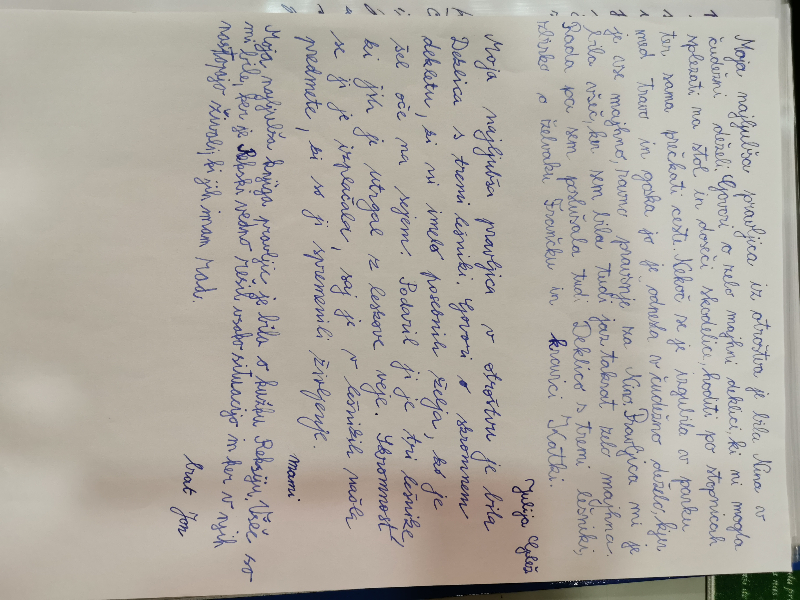 Moja najljubša pravljica iz otroštva je bila Nina v
čudežni deželi. Govori o zelo majhni deklici, ki ni mogla
splezati na stol in doseči skodelice, hoditi po stopnicah
ter sama prečkati ceste. Nekoč se je izgubila v parku
med travo in gaka jo je odnesla v čudežno deželo, kjer
je vse majhno, ravno pravšnje za Nino. Pravljica mi je
bila všeč, ker sem bila tudi jaz takrat zelo majhna.
Rada pa sem poslušala tudi Deklico s tremi lešniki,
zelvaku Frančku in kravici Katki.
Julija
Moja najljubša pravljica v otroštvu je bila
Deklica s tremi lešniki. Govori o skromnem
dekletu, ki ni imelo posebnih želja, ko je
šel oče na sejem. Podaril ji je tri lešnike,
ki jih je utrgal iz leskove veje. Skromnost
se ji je izplačala, saj je v lešnikih našla
predmete, ki so ji spremenili življenje.
mami
Moja najljubša knjiga pravljic je bila o kužku Reksiju. Všeč so
mi bile, ker je Reksi vedno rešil vsako situacijo in ker v njih
nastopajo živali, ki jih imam rad.
brat Jon